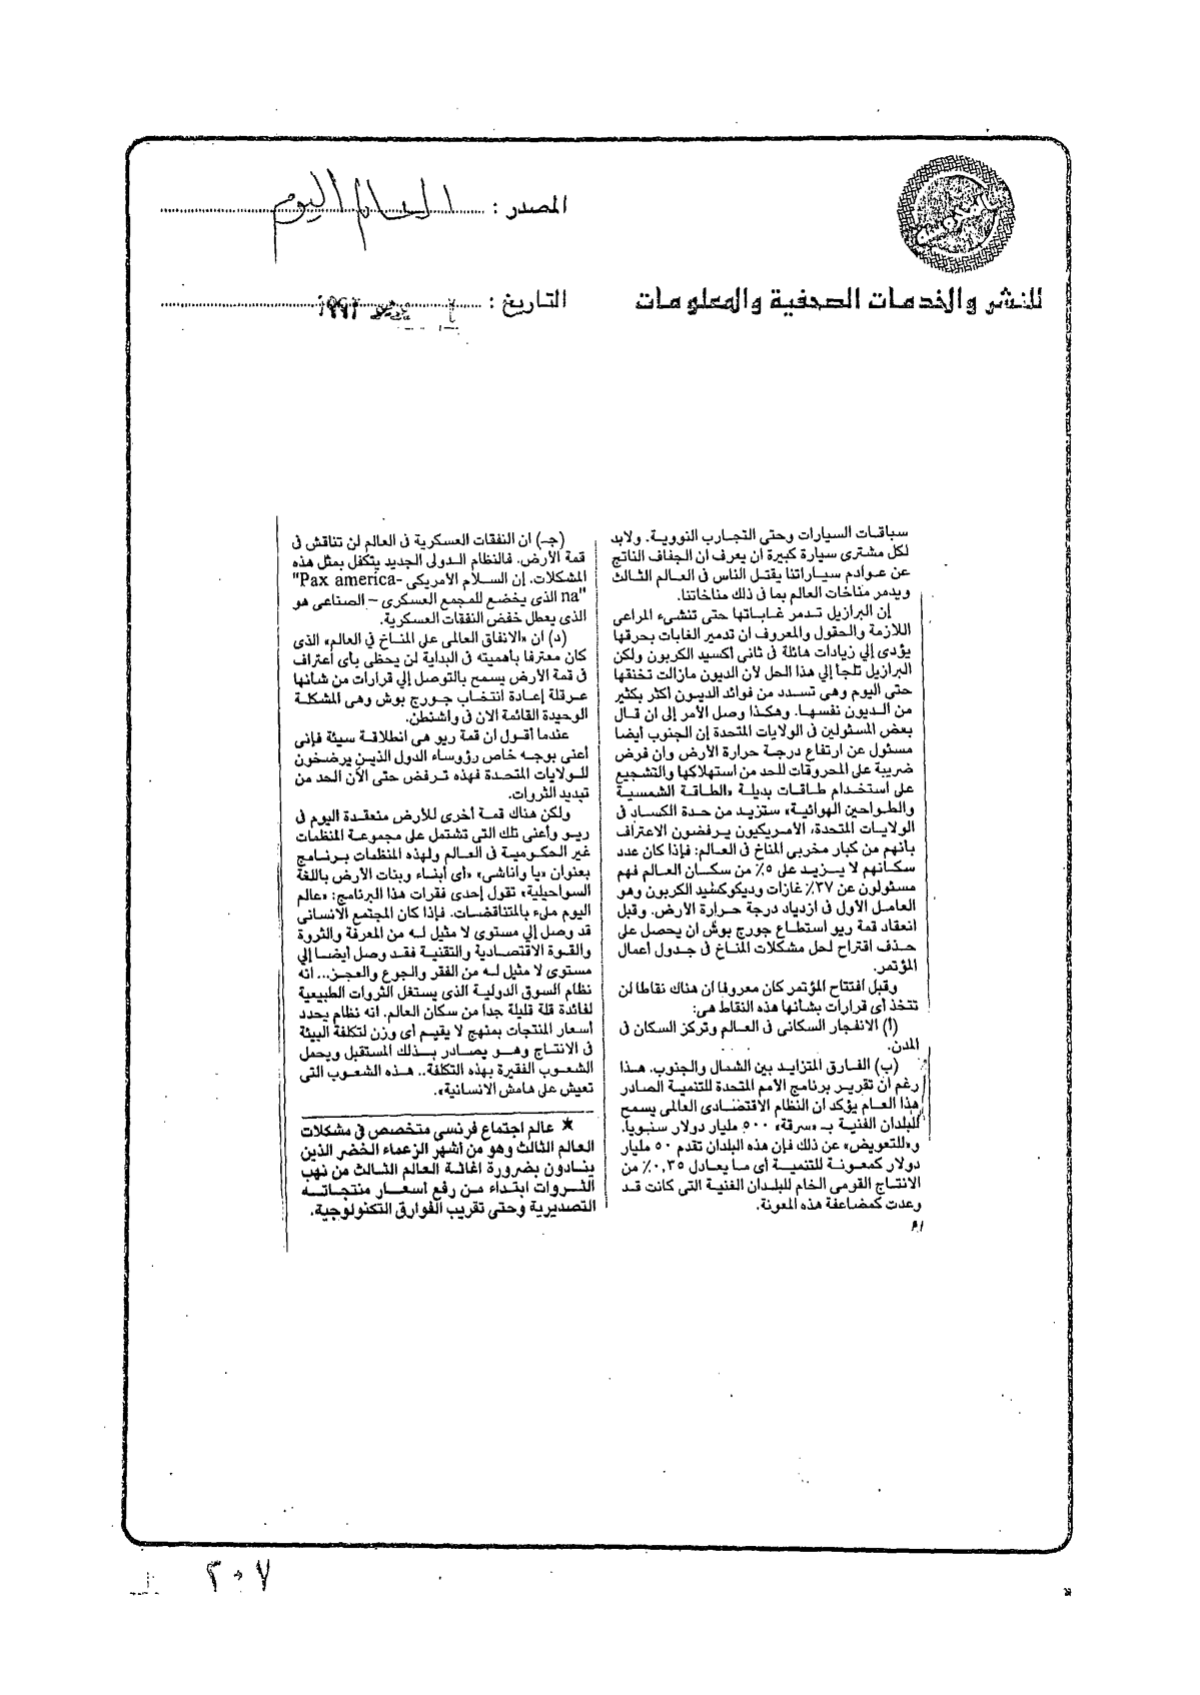 المصدر : العالم اليوم
للنشر والخدمات الصحفية والمعلومات
التاريخ : ١٩٩٢
سباقات السيارات وحتى التجارب النووية. ولابد
لكل مشترى سيارة كبيرة ان يعرف ان الجفاف الناتج
عن عوادم سياراتنا يقتل الناس فى العالم الثالث
ويدمر مناخات العالم بما فى ذلك مناخاتنا.
إن البرازيل تدمر غاباتها حتى تنشىء المراعى
اللازمة والحقول والمعروف ان تدمير الغابات بحرقها
يؤدى إلي زيادات هائلة فى ثانى أكسيد الكربون ولكن
البرازيل تلجأ إلي هذا الحل لأن الديون مازالت تخنقها
حتى اليوم وهى تسدد من فوائد الديون اكثر بكثير
من الديون نفسها. وهكذا وصل الأمر إلى ان قال
بعض المسئولين فى الولايات المتحدة إن الجنوب أيضا
مسئول عن ارتفاع درجة حرارة الأرض وان فرض
ضريبة على المحروقات للحد من استهلاكها والتشجيع
على استخدام طاقات بديلة «الطاقة الشمسية
والطواحين الهوائية» ستزيد من حدة الكساد فى
الولايات المتحدة، الأمريكيون يرفضون الاعتراف
بانهم من كبار مخربى المناخ فى العالم: فإذا كان عدد
سكانهم لا يزيد على ٥٪ من سكان العالم فهم
مسئولون عن ٢٧٪ غازات وديكوكسيد الكربون وهو
العامل الأول فى ازدياد درجة حرارة الأرض. وقبل
انعقاد قمة ريو استطاع جورج بوش ان يحصل على
حذف اقتراح لحل مشكلات المناخ فى جدول أعمال
المؤتمر.
وقبل افتتاح المؤتمر كان معروفا ان هناك نقاطا لن
تتخذ أى قرارات بشانها هذه النقاط هى:
(أ) الانفجار السكانى فى العالم وتركز السكان فى
المدن.
(ب) الفارق المتزايد بين الشمال والجنوب. هذا
رغم ان تقرير برنامج الأمم المتحدة للتنمية الصادر
هذا العام يؤكد ان النظام الاقتصادى العالمى يسمح
للبلدان الغنية بـ «سرقة» ٥٠٠ مليار دولار سنويا.
و«للتعويض» عن ذلك فإن هذه البلدان تقدم ٥٠ مليار
دولار كمعونة للتنمية أى ما يعادل ٠,٣٥٪ من
الانتاج القومى الخام للبلدان الغنية التى كانت قد
وعدت كمضاعفة هذه المعونة.
(جـ) ان النفقات العسكرية فى العالم لن تناقش فى
قمة الأرض. فالنظام الدولى الجديد يتكفل بمثل هذه
المشكلات. إن السلام الامريكى "Pax america-
na" الذى يخضع للمجمع العسكرى – الصناعى هو
الذى يعطل خفض النفقات العسكرية.
(د) ان «الاتفاق العالمى على المناخ في العالم» الذى
كان معترفا بأهميته فى البداية لن يحظى بأى اعتراف
فى قمة الأرض يسمح بالتوصل إلي قرارات من شانها
عرقلة إعادة انتخاب جورج بوش وهى المشكلة
الوحيدة القائمة الان فى واشنطن.
عندما أقول ان قمة ريو هى انطلاقة سيئة فإنى
أعنى بوجه خاص رؤوساء الدول الذين يرضخون
للولايات المتحدة فهذه ترفض حتى الآن الحد من
تبديد الثروات.
ولكن هناك قمة أخرى للأرض منعقدة اليوم فى
ريو وأعنى تلك التى تشتمل على مجموعة المنظمات
غير الحكومية فى العالم ولهذه المنظمات برنامج
بعنوان «يا واناشى» «أى أبناء وبنات الأرض باللغة
السواحيلية» تقول إحدى فقرات هذا البرنامج: «عالم
اليوم ملىء بالمتناقضات. فإذا كان المجتمع الانسانى
قد وصل إلي مستوى لا مثيل له من المعرفة والثروة
والقوة الاقتصادية والتقنية فقد وصل أيضا إلي
مستوى لا مثيل له من الفقر والجوع والعجز... انه
نظام السوق الدولية الذى يستغل الثروات الطبيعية
لفائدة قلة قليلة جدا من سكان العالم. انه نظام يحدد
أسعار المنتجات بمنهج لا يقيم أى وزن لتكلفة البيئة
فى الانتاج وهو يصادر بذلك المستقبل ويحمل
الشعوب الفقيرة بهذه التكلفة.. هذه الشعوب التى
تعيش على هامش الانسانية».
★ عالم اجتماع فرنسى متخصص فى مشكلات
العالم الثالث وهو من أشهر الزعماء الخضر الذين
ينادون بضرورة اغاثة العالم الثالث من نهب
الثروات ابتداء من رفع أسعار منتجاته
التصديرية وحتى تقريب الفوارق التكنولوجية.
٢٠٧